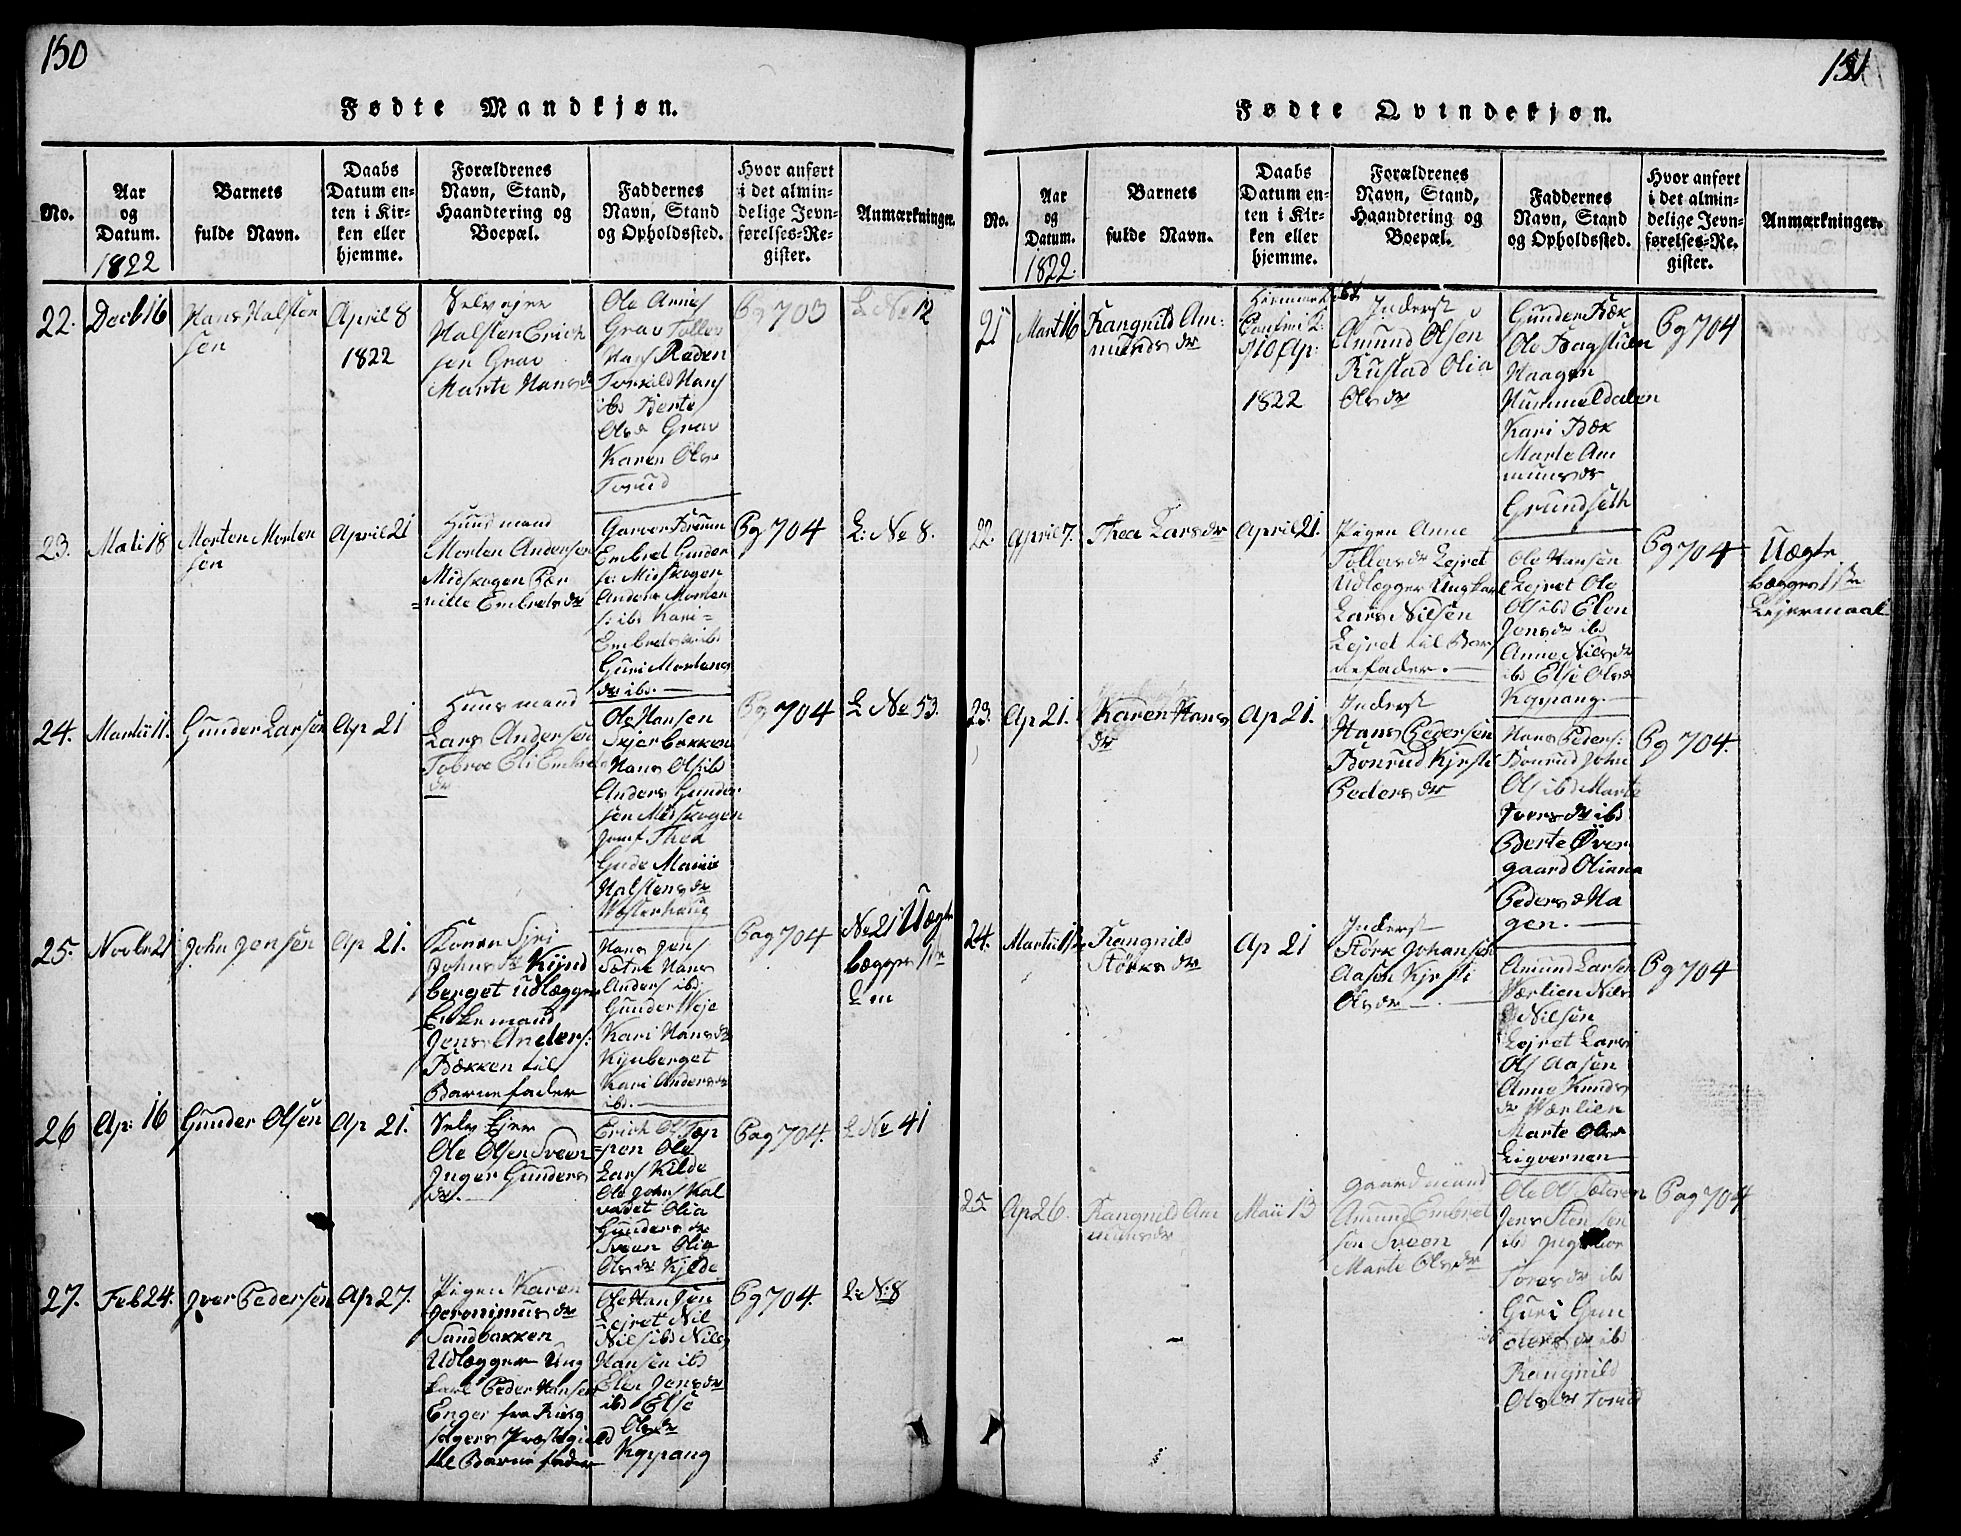 150
Fødte Mandkjøn.
No.
Aar
og
Datum.
1822
Barnets
fulde Navn.
Daabs
Datum en-
ten i Kir-
ken eller
hjemme.
Forældrenes
Navn, Stand,
Haandtering og
Boepæl.
Faddernes
Navn, Stand
og Opholdssted.
Hvor anført
i det almin-
delige Jevn-
førelses-Re-
gister.
Anmærkninger.
22.
Decb 16
Hans Halsten
sen
April 8
1822
Selvejer
Halsten Erich
sen Grav
Marte Hansdr
Ole Arnes
Grav Tollev
Hans Roden
Torkild Hans
ibd Berte
Olsd Grav
Karen Ols
Torud
Pg 703
L No 12
23.
Marti 18
Morten Morten
sen
April 21
Huusmand
Morten Andersen
Midskogen Per
nille Embretsdr
Garver Brumm
Embret Gunder
s: Midskogen
Anders Morten
s: ibd Kari
Embretsdr ibd
Guri Mortens
dr ibd.
Pg 704
L: No 8.
24.
Martii 11.
Gunder Larsen
Ap 21
Huusmand
Lars Andersen
Tobroe Eli Embrets
dr
Ole Hansen
Skjerbekken
Hans Ols ibd
Anders Gunder
sen Midskogen
Jomf Thea
Gude Marie
Halstensdr
Westerhaug
Pg 704
L No 53.
25.
Novbr 21
John Jensen
Ap 21.
Konen Siri
Johnsdr Kynd
berget udlægger
Enkemand
Jens Anders:
Bækken til
Barnefader
Hans Jens
Sætre Hans
Anders ibd
Gunder Weje
Kari Hansdr
Kynberget
Kari Andersdr
ibd.
Pag 704
No 21 Uægte
begges 1ste
L m
26
Ap: 16
Gunder Olsen
Ap 21.
Selv Ejer
Ole Olsen Sveen
Inger Gunders
dr.
Erich Ols Tep
pen Ole
Lars Kilde
Ole Johns Kal
vadet Olia
Gundersdr
Sveen Olia
Olsdr Kjelde
Pag 704.
L No 41
27.
Feb 24.
Iver Pedersen
Ap 27.
Pigen Karen
Jeronimusdr
Sandbakken
Udlægger Ung
karl Peder Hansen
Enger fra Kong
sagers Præstegield
til Barnefader
Ole Hansen
Lejret Nil
Nils ibd Nils
Hansen ibd
Elen Jensdr
ibd Else
Olsdr
Kypang
Pg 704.
L: N: 8
151
Fødte Qvindekjøn.
No.
Aar
og
Datum.
1822.
Barnets
fulde Navn.
Daabs
Datum en-
ten i Kir-
ken eller
hjemme.
Forældrenes
Navn, Stand,
Haandtering og
Boepæl.
Faddernes
Navn, Stand
og Opholdssted.
Hvor anført
i det almin-
delige Jevn-
førelses-Re-
gister.
Anmærkninger.
21
Mart 16
Rangnild Am-
mundsdr
Hjemme Døbt
Confmi K:
10 Ap:
1822
Inderst
Amund Olsen
Rustad Olia
Olsdr
Gunder Bæk
Ole Bagstuen
Haagen
Hummeldalen
Kari Bæk
Marte Am
munsdr
Grundseth
Pg 704
22.
April 7.
Thea Larsdr
April 21.
Pigen Anne
Tollefsdr Lejret
Udlægger Ungkarl
Lars Nilsen
Lejret til Bar
nefader.
Ole Hansen
Lejret Ole
Ols ibd Elen
Jensdr ibd
Anne Nilsdr
ibd Else Olsdr
Kypang.
Pg 704
Uægte
begges 1ste
Lejermaal
23.
Ap 21.
Karen Hans
dr
Ap 21.
Inderst
Hans Pedersen
Bonrud Kjrsti
Pedersdr
Hans Peders:
Bonrud John
Ols ibd Marte
Iversdr ibd
Berte Øver
gaard Oliana
Pedersd Ha
gen.
Pg 704.
24.
Martii 12
Rangnild
Størksdr
Ap 21
Inderst
Størk Johansen
Aasen Kjrsti
Olsdr
Amund Larsen
Værlien Nils
Nilsen
Lejret Lars
Ols Aasen
Anne Knuds
dr Værlien
Marte Ols
Ligvernen
Pg 704
25.
Ap 26.
Rangnild Am
munsdr
Maii 13
Gaardmand
Amun Embret
sen Sveen
Marte Olsdr
Ole Ols Sæteren
Jens Stensen
ibd Ingebor
Toresdr ib
Guri Gun
dersdr ibd
Rangnild
Olsdr Torud
Pag 704